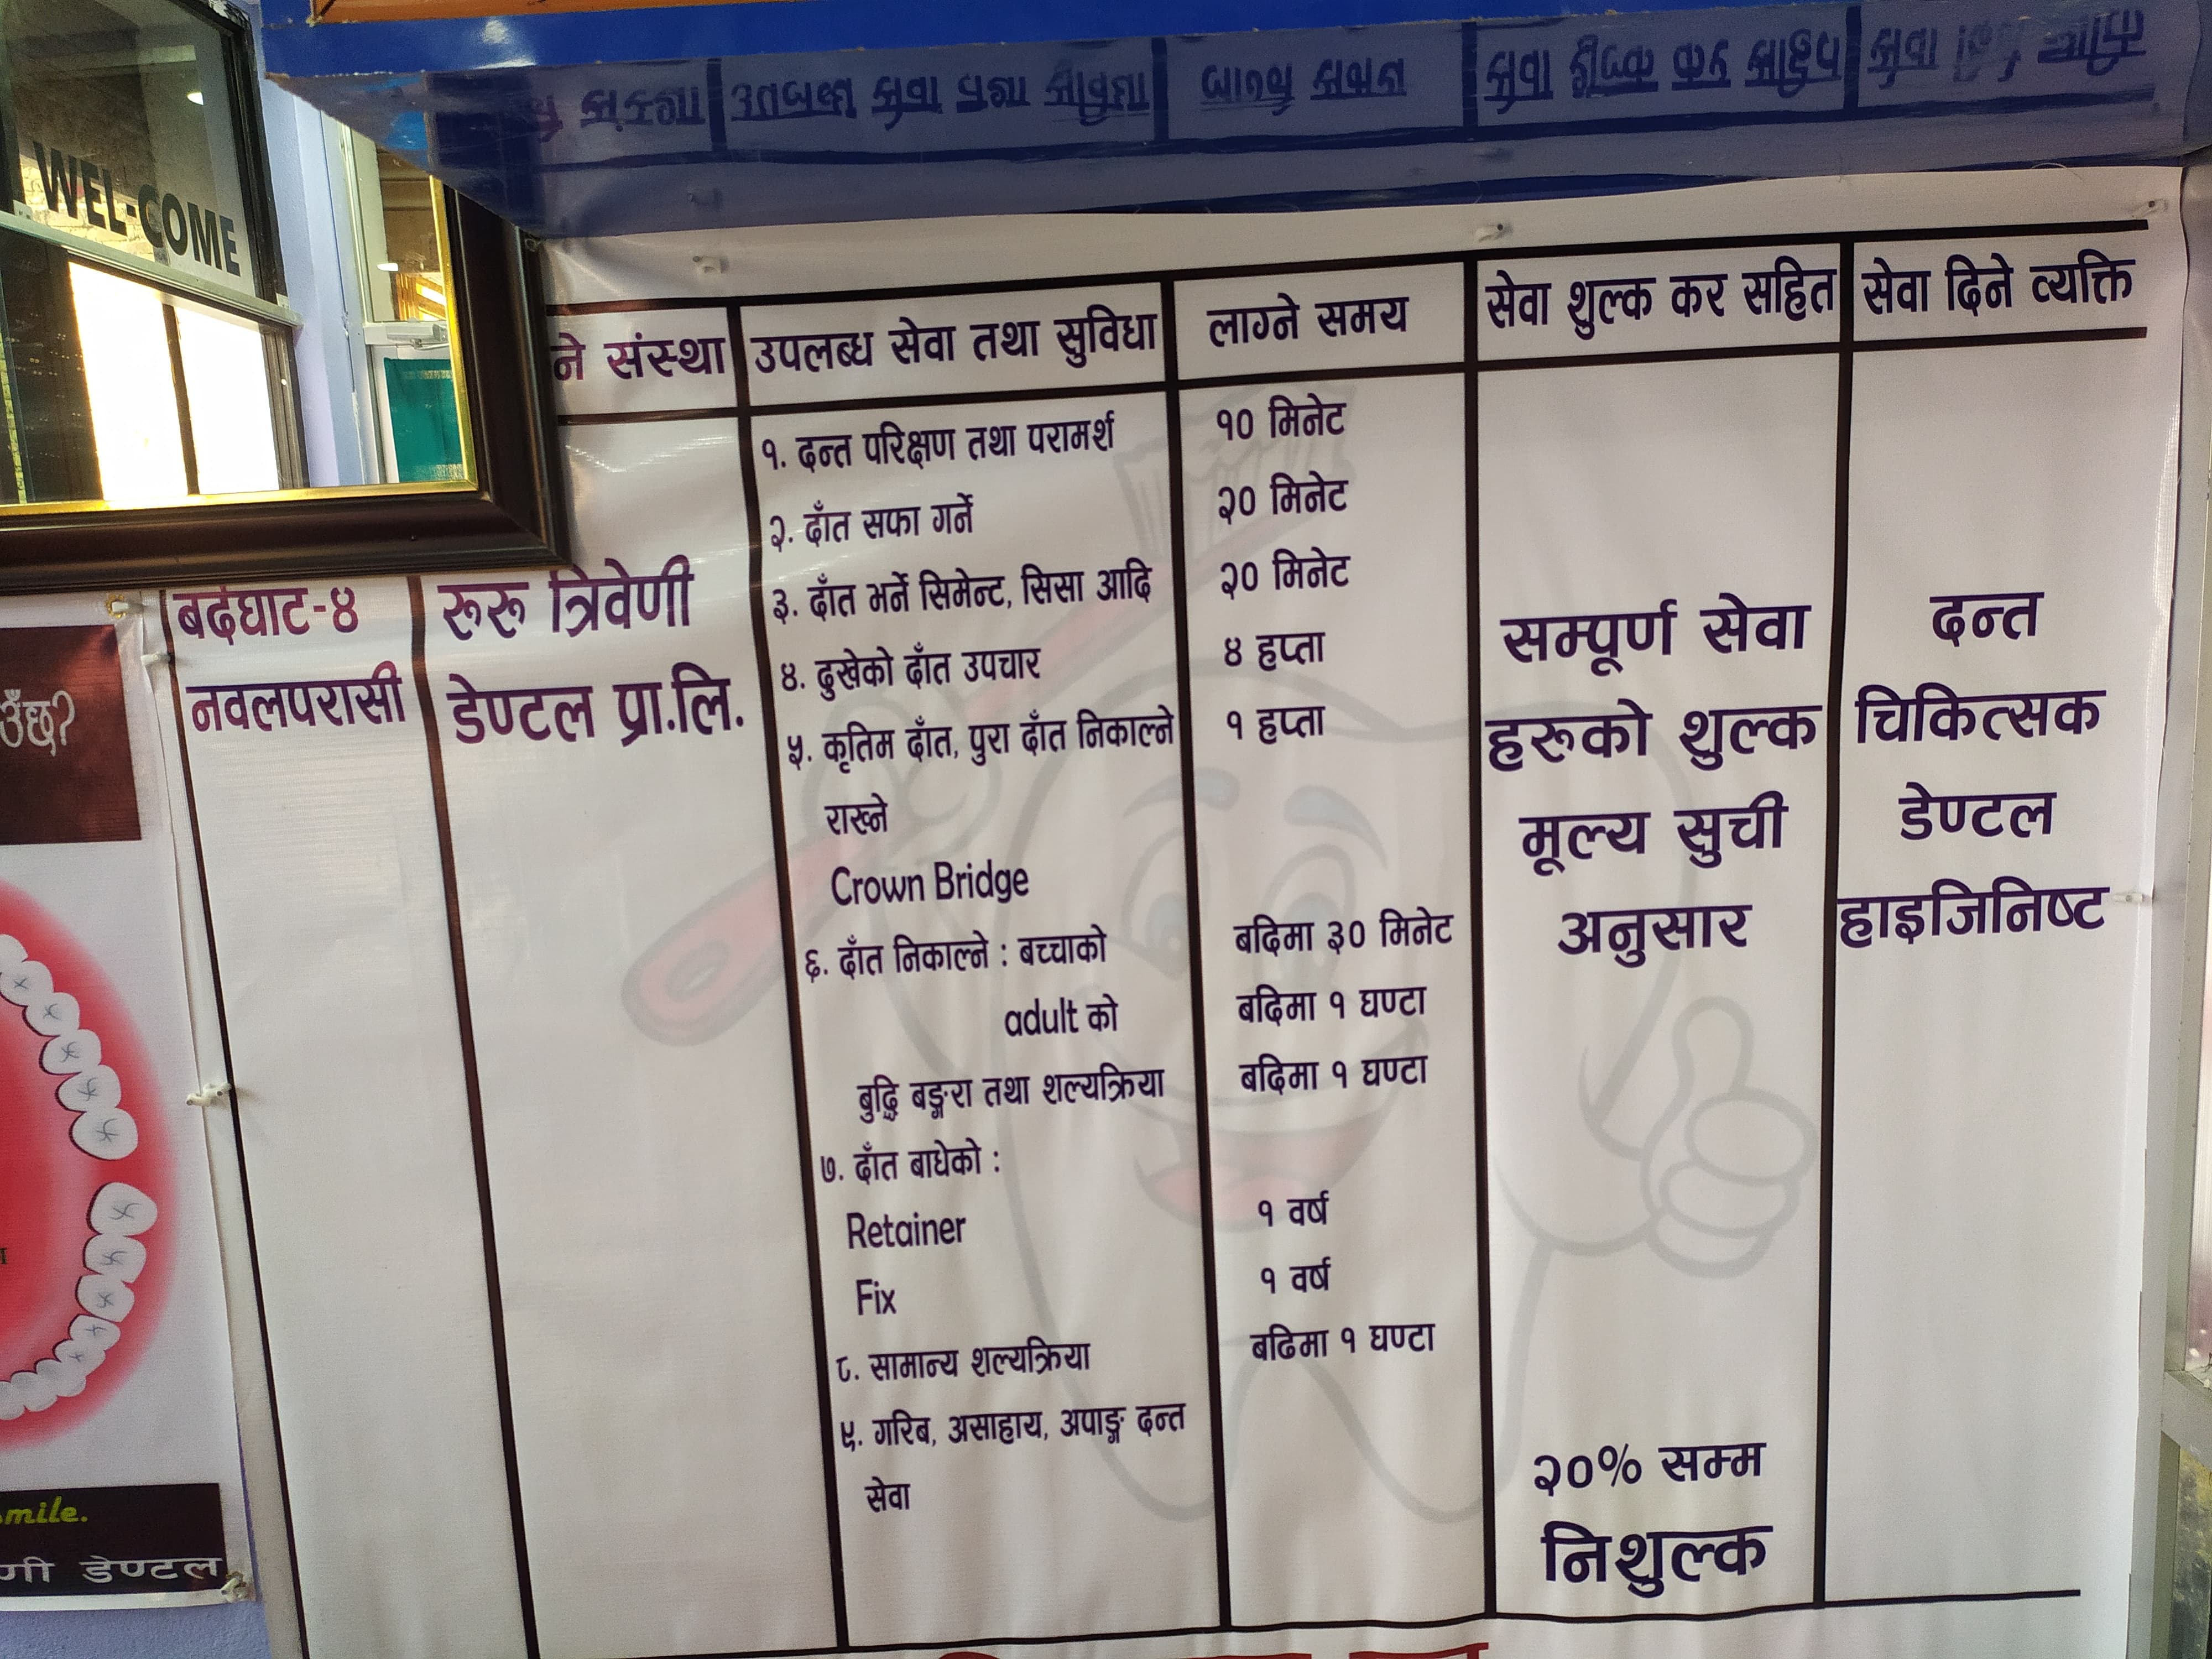 WEL-COME
ने संस्था
उपलब्ध सेवा तथा सुविधा
लाग्ने समय
सेवा शुल्क कर सहित
सेवा दिने व्यक्ति
बर्दघाट-४
नवलपरासी
रूरू त्रिवेणी
डेण्टल प्रा.लि.
१. दन्त परिक्षण तथा परामर्श
१० मिनेट
२. दाँत सफा गर्ने
२० मिनेट
३. दाँत भर्ने सिमेन्ट, सिसा आदि
२० मिनेट
४. दुखेको दाँत उपचार
४ हप्ता
५. कृतिम दाँत, पुरा दाँत निकाल्ने
१ हप्ता
राख्ने
Crown Bridge
६. दाँत निकाल्ने : बच्चाको
बढिमा ३० मिनेट
adult को
बढिमा १ घण्टा
बुद्धि बङ्गरा तथा शल्यक्रिया
बढिमा १ घण्टा
७. दाँत बाधेको :
Retainer
१ वर्ष
Fix
१ वर्ष
८. सामान्य शल्यक्रिया
बढिमा १ घण्टा
९. गरिब, असाहाय, अपाङ्ग दन्त
सेवा
सम्पूर्ण सेवा
हरूको शुल्क
मूल्य सुची
अनुसार
२०% सम्म
निशुल्क
दन्त
चिकित्सक
डेण्टल
हाइजिनिष्ट
उँछ?
mile.
णी डेण्टल